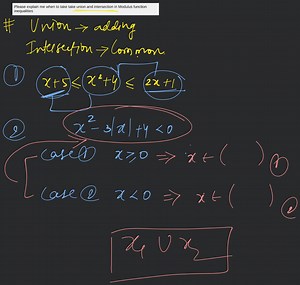 Please explain me when to take take union and intersection in Modulus function inequalities
# Union → adding
Intersection → Common
① x+5 ≤ x²+4 ≤ 2x+1
② x²-3|x|+4<0
case① x≥0 ⇒ x∈( ) ①
case② x<0 ⇒ x∈( ) ②
x₁ ∪ x₂